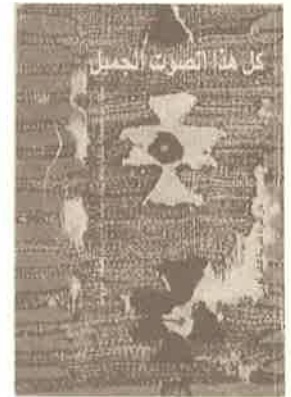 كل هذا الصوت الجميل